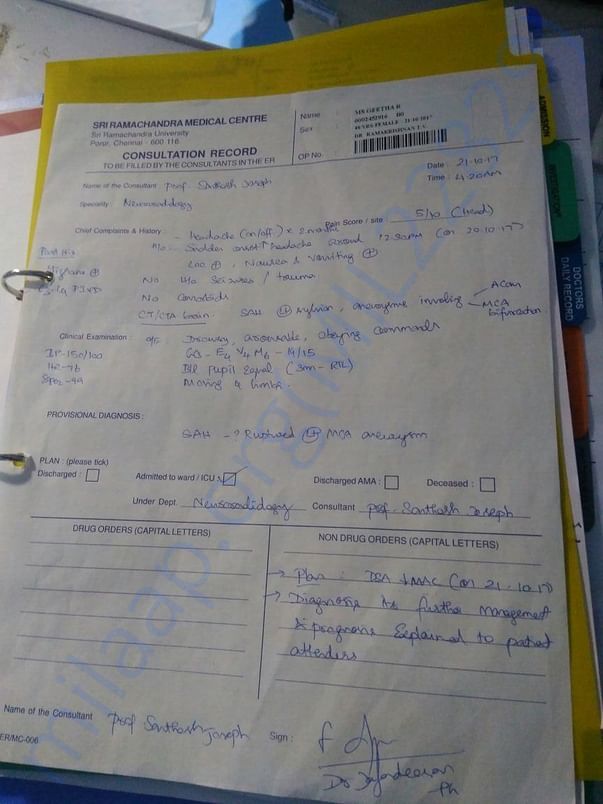 SRI RAMACHANDRA MEDICAL CENTRE
Sri Ramachandra University
Porur, Chennai - 600 116
CONSULTATION RECORD
TO BE FILLED BY THE CONSULTANTS IN THE ER
Name : MS GEETHA R
Sex
48YRS FEMALE 21-10-2017
DR RAMAKRISHNAN T.V.
OP No.
ADMISSION
DOCTORS DAILY RECORD
Date : 21.10.17
Time : 4.20AM
Name of the Consultant : Prof. Santhosh Joseph
Speciality : Neuroradiology
Pain Score / site : 5/10 (Head)
Chief Complaints & History : - headache (on/off) x 2
H/o Sudden onset headache around 12.30PM (on 20.10.17)
LOC ⊕, Nausea & Vomiting ⊕
Past H/o
Migraine ⊕
No H/o Seizures / trauma
No Comorbids
CT/CTA brain : SAH (L) sylvian, aneurysms involving
Acom
MCA bifurcation
Clinical Examination : O/E Drowsy, arousable, obeying commands
BP-150/100 GCS - E4 V4 M6 - 14/15
B/L Pupil Equal (3mm - RTL)
Moving 4 limbs.
PROVISIONAL DIAGNOSIS :
SAH - ? Ruptured (L) MCA aneurysm
PLAN : (please tick)
Discharged : Admitted to ward / ICU : Discharged AMA : Deceased :
Under Dept. Neuroradiology Consultant Prof. Santhosh Joseph
DRUG ORDERS (CAPITAL LETTERS)
NON DRUG ORDERS (CAPITAL LETTERS)
→ Plan : DSA (on 21.10.17)
→ Diagnosis its further management
& prognosis Explained to patient
attenders
Name of the Consultant Prof Santhosh Joseph Sign :
ER/MC-006
milaap.org